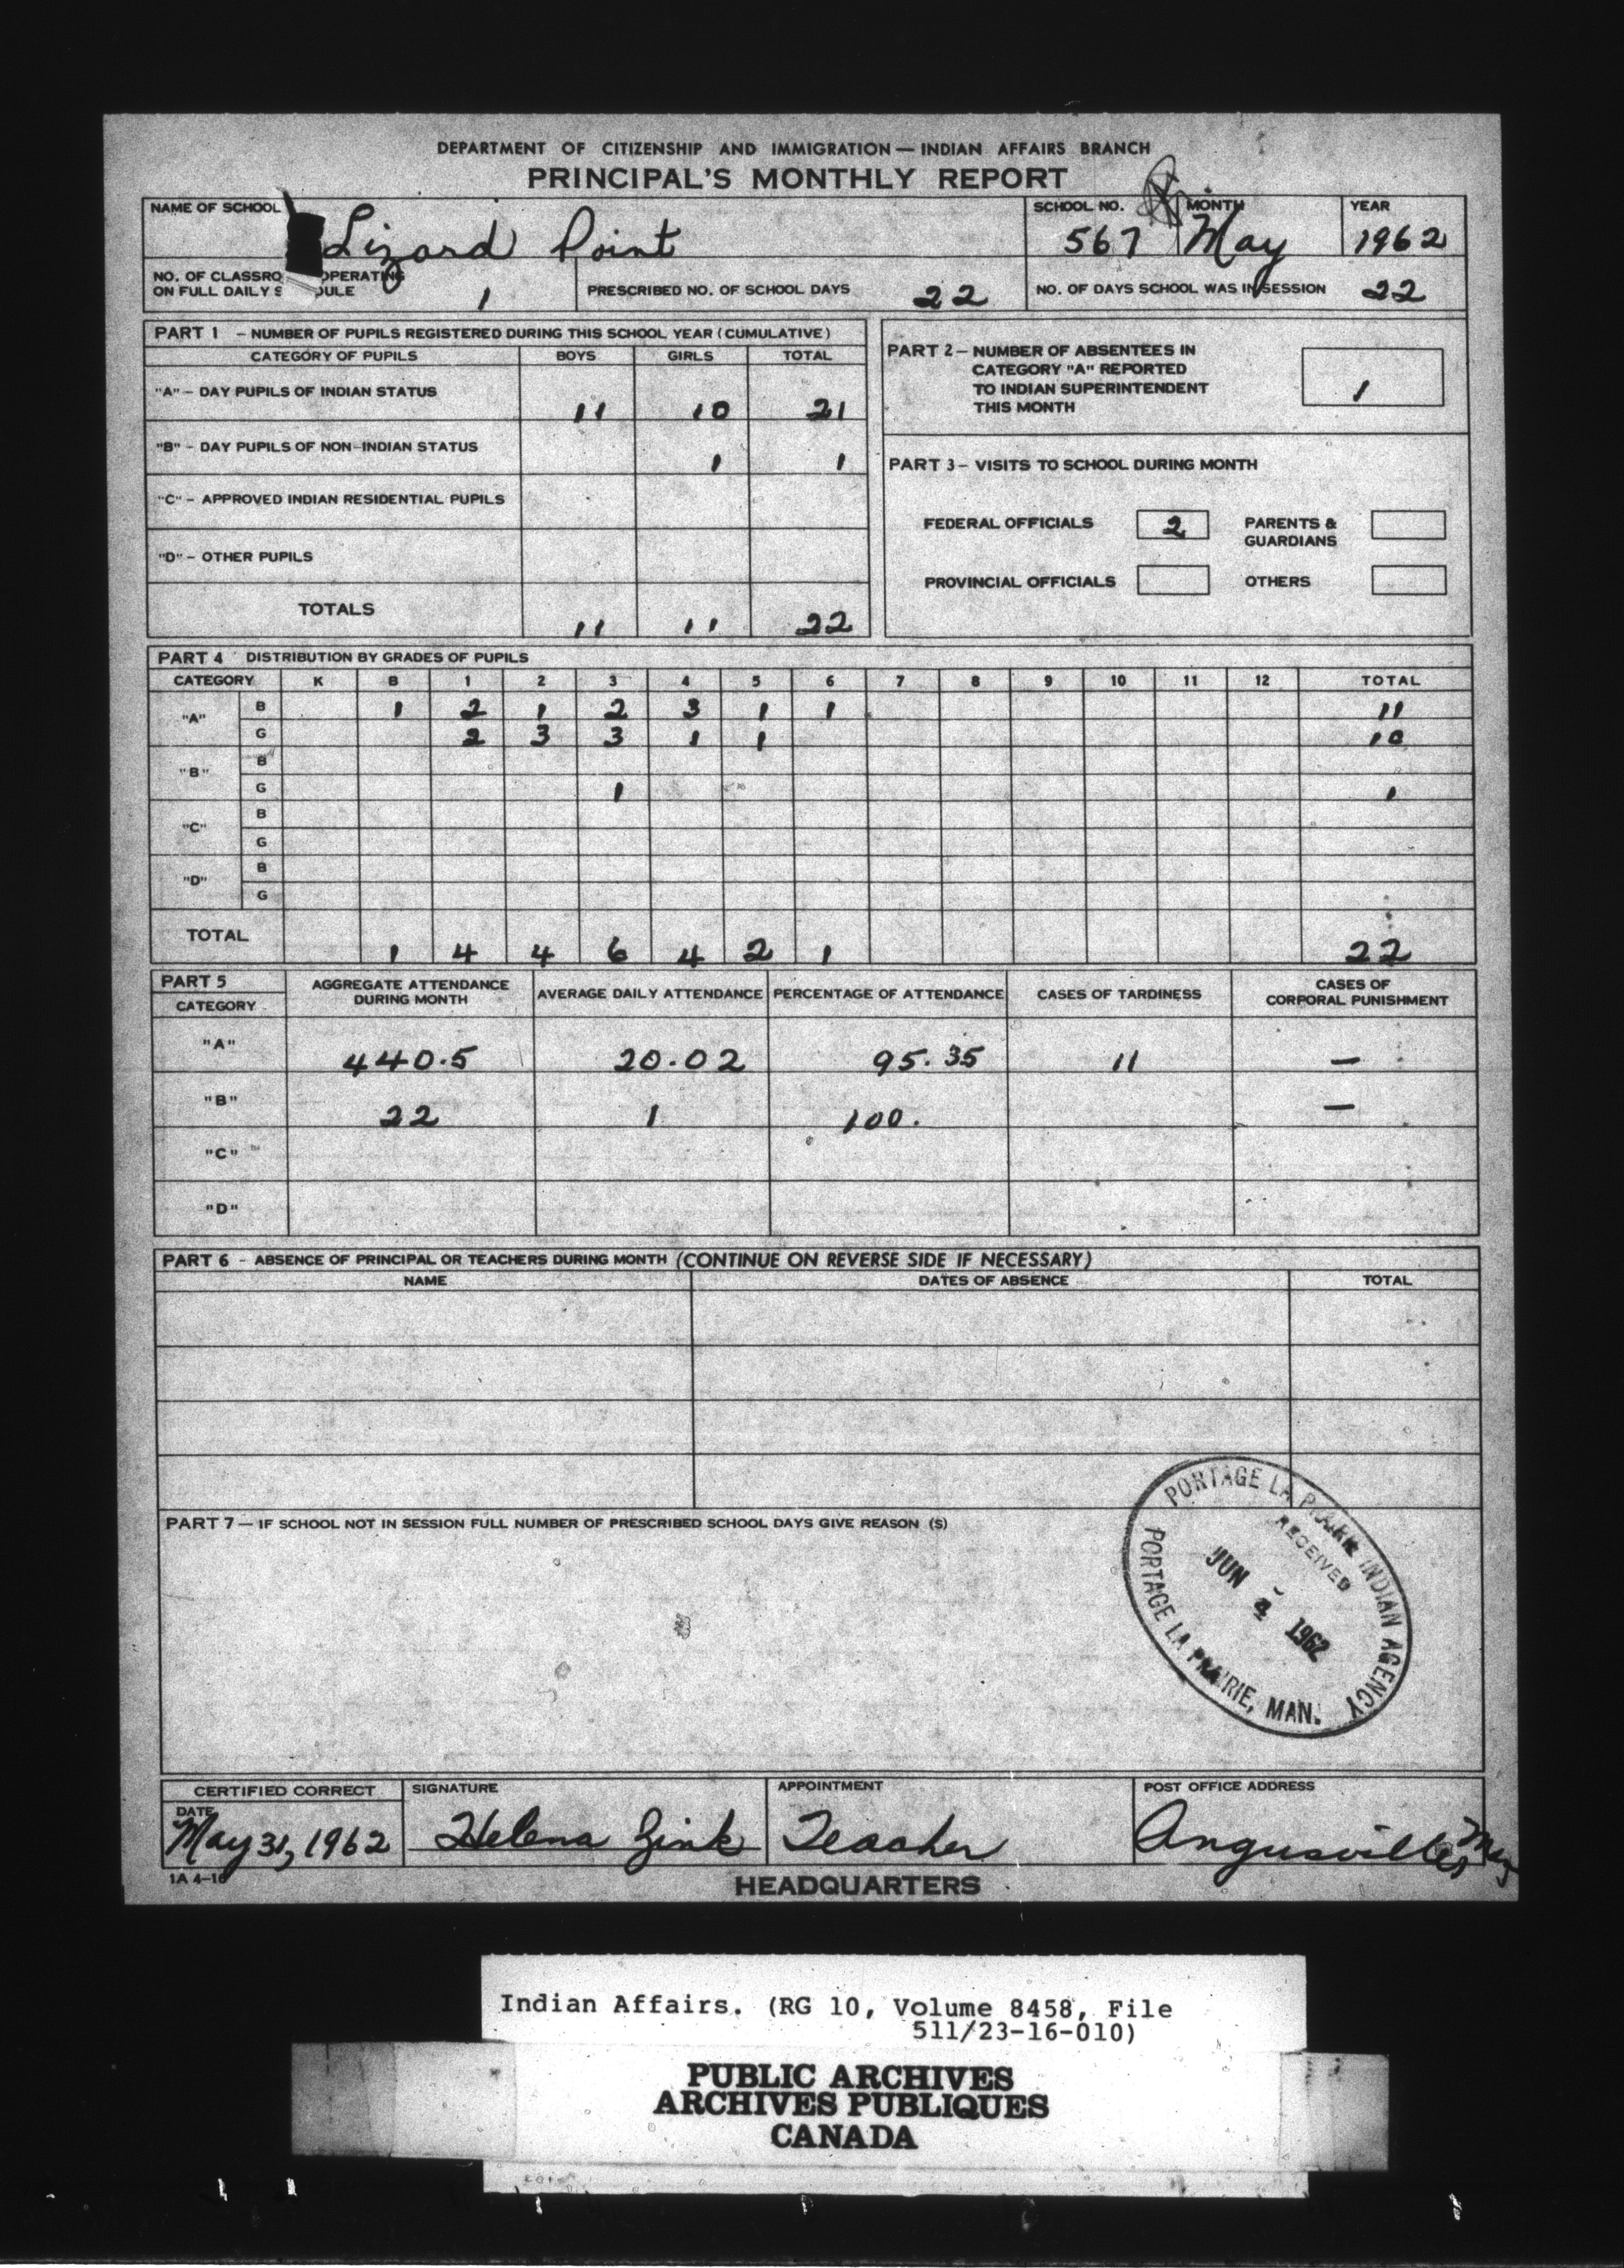 DEPARTMENT OF CITIZENSHIP AND IMMIGRATION — INDIAN AFFAIRS BRANCH
PRINCIPAL'S MONTHLY REPORT
NAME OF SCHOOL Lizard Point SCHOOL NO. 567 MONTH May YEAR 1962
NO. OF CLASSRO OPERATING
ON FULL DAILY S DULE 1 PRESCRIBED NO. OF SCHOOL DAYS 22 NO. OF DAYS SCHOOL WAS IN SESSION 22
PART 1 - NUMBER OF PUPILS REGISTERED DURING THIS SCHOOL YEAR (CUMULATIVE)
CATEGORY OF PUPILS BOYS GIRLS TOTAL
"A" - DAY PUPILS OF INDIAN STATUS 11 10 21
"B" - DAY PUPILS OF NON-INDIAN STATUS 1 1
"C" - APPROVED INDIAN RESIDENTIAL PUPILS
"D" - OTHER PUPILS
TOTALS 11 11 22
PART 2 - NUMBER OF ABSENTEES IN
CATEGORY "A" REPORTED
TO INDIAN SUPERINTENDENT
THIS MONTH 1
PART 3 - VISITS TO SCHOOL DURING MONTH
FEDERAL OFFICIALS 2 PARENTS &
GUARDIANS
PROVINCIAL OFFICIALS OTHERS
PART 4 DISTRIBUTION BY GRADES OF PUPILS
CATEGORY K B 1 2 3 4 5 6 7 8 9 10 11 12 TOTAL
"A" B 1 2 1 2 3 1 1 11
G 2 3 3 1 1 10
"B" B
G 1 1
"C" B
G
"D" B
G
TOTAL 1 4 4 6 4 2 1 22
PART 5
CATEGORY AGGREGATE ATTENDANCE
DURING MONTH AVERAGE DAILY ATTENDANCE PERCENTAGE OF ATTENDANCE CASES OF TARDINESS CASES OF
CORPORAL PUNISHMENT
"A" 440.5 20.02 95.35 11 —
"B" 22 1 100. —
"C"
"D"
PART 6 - ABSENCE OF PRINCIPAL OR TEACHERS DURING MONTH (CONTINUE ON REVERSE SIDE IF NECESSARY)
NAME DATES OF ABSENCE TOTAL
PART 7 — IF SCHOOL NOT IN SESSION FULL NUMBER OF PRESCRIBED SCHOOL DAYS GIVE REASON (S)
PORTAGE LA PRAIRIE INDIAN AGENCY
RECEIVED
JUN 4 1962
PORTAGE LA PRAIRIE, MAN.
CERTIFIED CORRECT SIGNATURE APPOINTMENT POST OFFICE ADDRESS
DATE
May 31, 1962 Helena Zink Teacher Angusville,
1A 4-16
HEADQUARTERS
Indian Affairs. (RG 10, Volume 8458, File
511/23-16-010)
PUBLIC ARCHIVES
ARCHIVES PUBLIQUES
CANADA